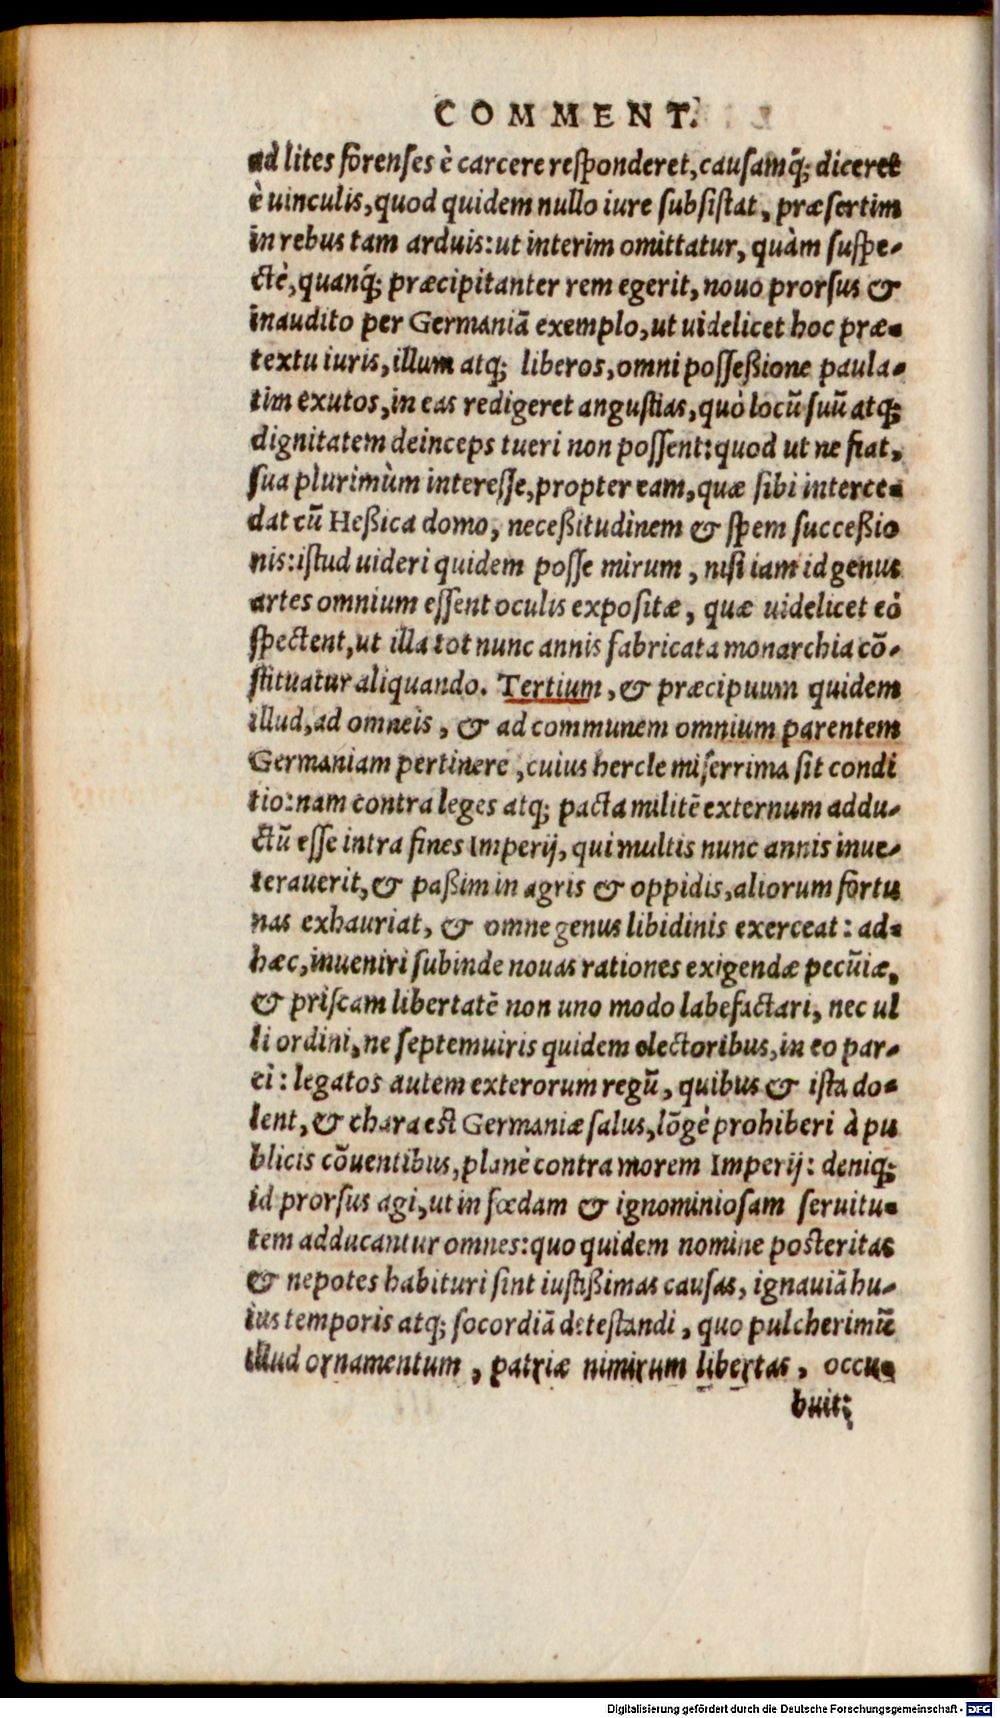 COMMENT.
ad lites forenses è carcere responderet, causamq́; diceret
è uinculis, quod quidem nullo iure subsistat, præsertim
in rebus tam arduis: ut interim omittatur, quàm suspe-
ctè, quanq́; præcipitanter rem egerit, nouo prorsus &
inaudito per Germaniā exemplo, ut uidelicet hoc præ-
textu iuris, illum atq; liberos, omni posseßione paula-
tim exutos, in eas redigeret angustias, quò locū suū atq;
dignitatem deinceps tueri non possent: quod ut ne fiat,
sua plurimùm interesse, propter eam, quæ sibi interce-
dat cū Heßica domo, neceßitudinem & spem succeßio
nis: istud uideri quidem posse mirum, nisi iam id genus
artes omnium essent oculis expositæ, quæ uidelicet eò
spectent, ut illa tot nunc annis fabricata monarchia cō-
stituatur aliquando. Tertium, & præcipuum quidem
illud, ad omneis, & ad communem omnium parentem
Germaniam pertinere, cuius hercle miserrima sit condi
tio: nam contra leges atq; pacta militē externum addu-
ctū esse intra fines Imperij, qui multis nunc annis inue-
terauerit, & paßim in agris & oppidis, aliorum fortu
nas exhauriat, & omne genus libidinis exerceat: ad-
hæc, inueniri subinde nouas rationes exigendæ pecūiæ,
& priscam libertatē non uno modo labefactari, nec ul
li ordini, ne septemuiris quidem electoribus, in eo par-
ci: legatos autem exterorum regū, quibus & ista do-
lent, & chara est Germaniæ salus, lōgè prohiberi à pu
blicis cōuentibus, planè contra morem Imperij: deniq;
id prorsus agi, ut in fœdam & ignominiosam seruitu-
tem adducantur omnes: quo quidem nomine posteritas
& nepotes habituri sint iustißimas causas, ignauiā hu-
ius temporis atq; socordiā detestandi, quo pulcherimū
illud ornamentum, patriæ nimirum libertas, occu-
buit:
Digitalisierung gefördert durch die Deutsche Forschungsgemeinschaft - DFG